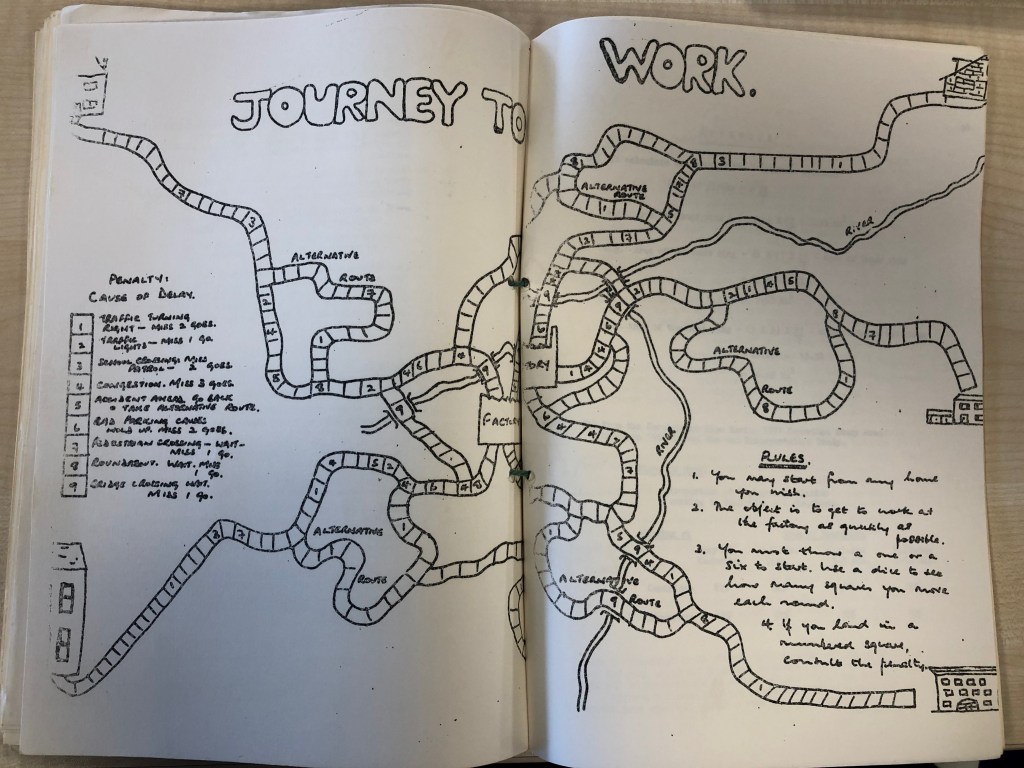 JOURNEY TO WORK.
ALTERNATIVE ROUTE
RIVER
ALTERNATIVE ROUTE
PENALTY:
CAUSE OF DELAY.
1 TRAFFIC TURNING
RIGHT - MISS 2 GOES.
2 TRAFFIC
LIGHTS - MISS 1 GO.
3 SCHOOL CROSSING MISS
PATROL - 2 GOES
4 CONGESTION. MISS 3 GOES.
5 ACCIDENT AHEAD GO BACK
& TAKE ALTERNATIVE ROUTE.
6 BAD PARKING CAUSES
HOLD UP. MISS 2 GOES.
7 PEDESTRIAN CROSSING - WAIT -
MISS 1 GO.
8 ROUNDABOUT. WAIT. MISS
1 GO.
9 BRIDGE CROSSING WAIT.
MISS 1 GO.
FACTORY
TORY
ALTERNATIVE
ROUTE
RIVER
ALTERNATIVE
ROUTE
ALTERNATIVE
ROUTE
RULES.
1. You may start from any home
you wish.
2. The object is to get to work at
the factory as quickly as
possible.
3. You must throw a one or a
six to start. Use a dice to see
how many squares you move
each round.
4 If you land in a
numbered square,
consult the penalty.